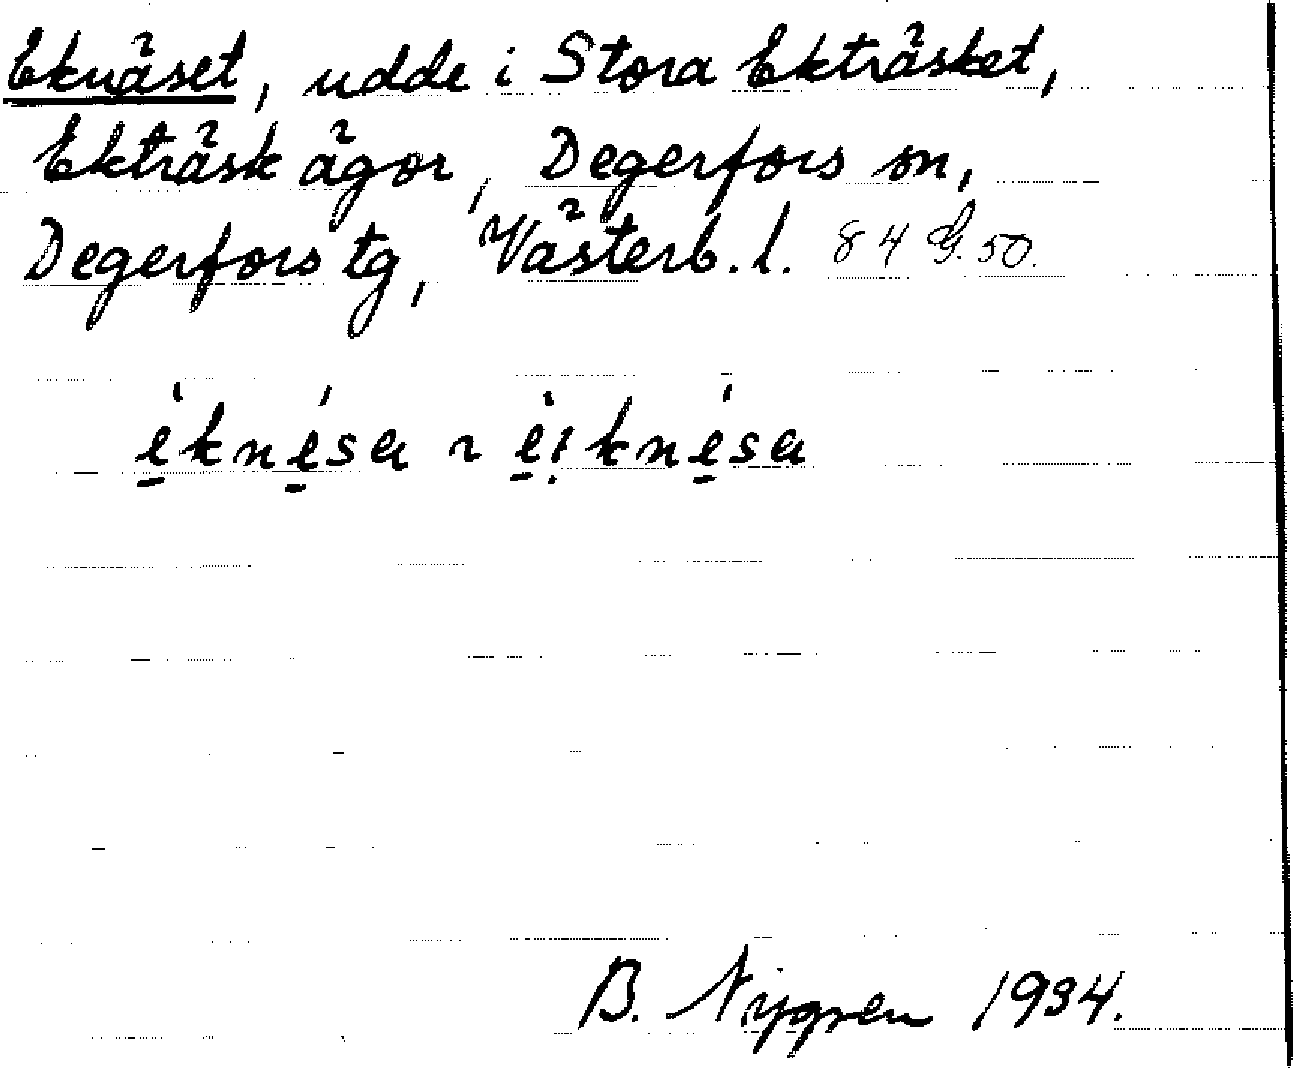 Eknäset, udde i Stora Ekträsket,
Ekträsk ägor, Degerfors sn,
Degerfors tg, Västerb. l. 84 G. 50.
è̱kné̱sa ~ è̱i̩kné̱sa
B. Nygren 1934.